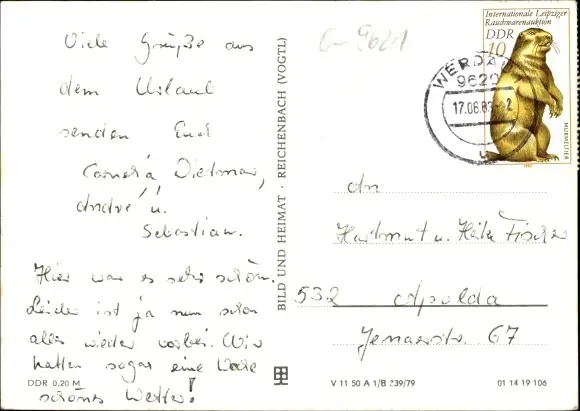 Viele Grüße aus
dem Urlaub
senden Euch
Dietmar,
André u.
Sebastian.
Hier war es sehr schön.
Leider ist ja nun schon
alles wieder vorbei. Wir
hatten sogar eine Woche
schönes Wetter!
DDR 0,20 M
BILD UND HEIMAT · REICHENBACH (VOGTL)
G-9621
Internationale Leipziger
Rauchwarenauktion
DDR
10
MURMELTIER
WERDAU
9620
17.06.83
An
Hartmut u. Fischer
532 Apolda
Jenaerstr. 67
V 11 50 A 1/B 239/79
01 14 19 106